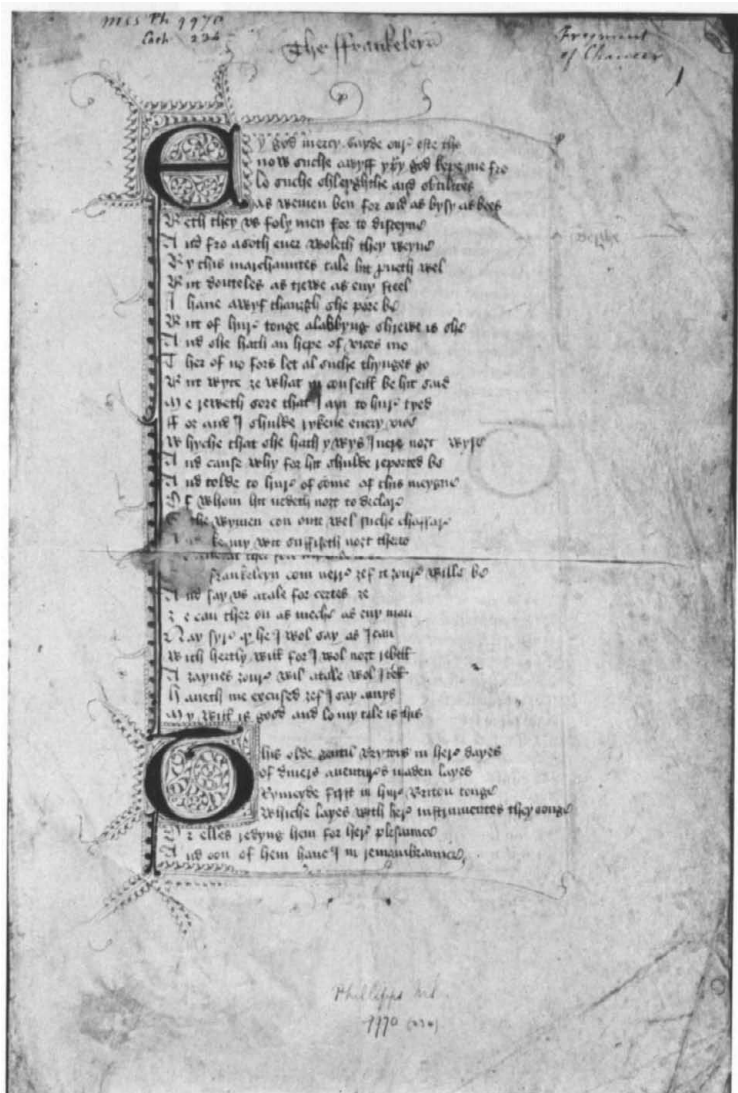 mss Ph 9970
Cach 234
The ffrankeleyn
Fragment
of Chaucer
1
Ey god mercy sayde our oste tho
now suche a wyff y god kepe me fro
lo suche sleyghthe and
as wemen ben for and as bysy as bees
Beth they vs sely men for to disceyue
And fro a soth euer woleth they weyue
By this marchauntes tale hit preueth wel
But douteles as trewe as eny steel
I haue a wyf though she pore be
But of hure tonge a labbyng shrewe is she
And she hath an hepe of vices mo
Ther of no fors let al suche thynges go
But wyte ze what in conseill be hit said
Me reweth sore that I am to hure tyed
ffor and I shulde rykene euery vice
Whyche that she hath ywys I were nort wyse
And cause why for hit shulde reported be
And tolde to hure of some of this meygne
Of whom hit nedeth nort to declare
wymen con oute wel suche chaffare
my wit suffiseth nort therto
frankeleyn com nerre zef it zoure wille be
And say vs a tale for certes ze
ze can ther on as meche as eny man
Nay syre he I wol say as I can
With hertly will for I wol nort rebell
A zaynes zoure wil a tale wol I tell
Haueth me excused zef I say amys
My will is good and lo my tale is this
This olde gentil Brytons in here dayes
of diuers auentures maden layes
Rymeyde first in hure Briton tonge
Whiche layes with here instrumentes they songe
Or elles redyng hem for here plesaunce
And oon of hem haue I in remembraunce
Phillipps MS.
9970 (234)